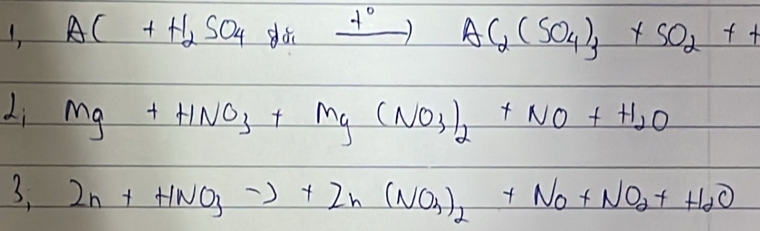 1, Al + H₂SO₄ đặc t° → Al₂(SO₄)₃ + SO₂ + +
2; Mg + HNO₃ + Mg (NO₃)₂ + NO + H₂O
3, Zn + HNO₃ → + Zn (NO₃)₂ + NO + NO₂ + H₂O